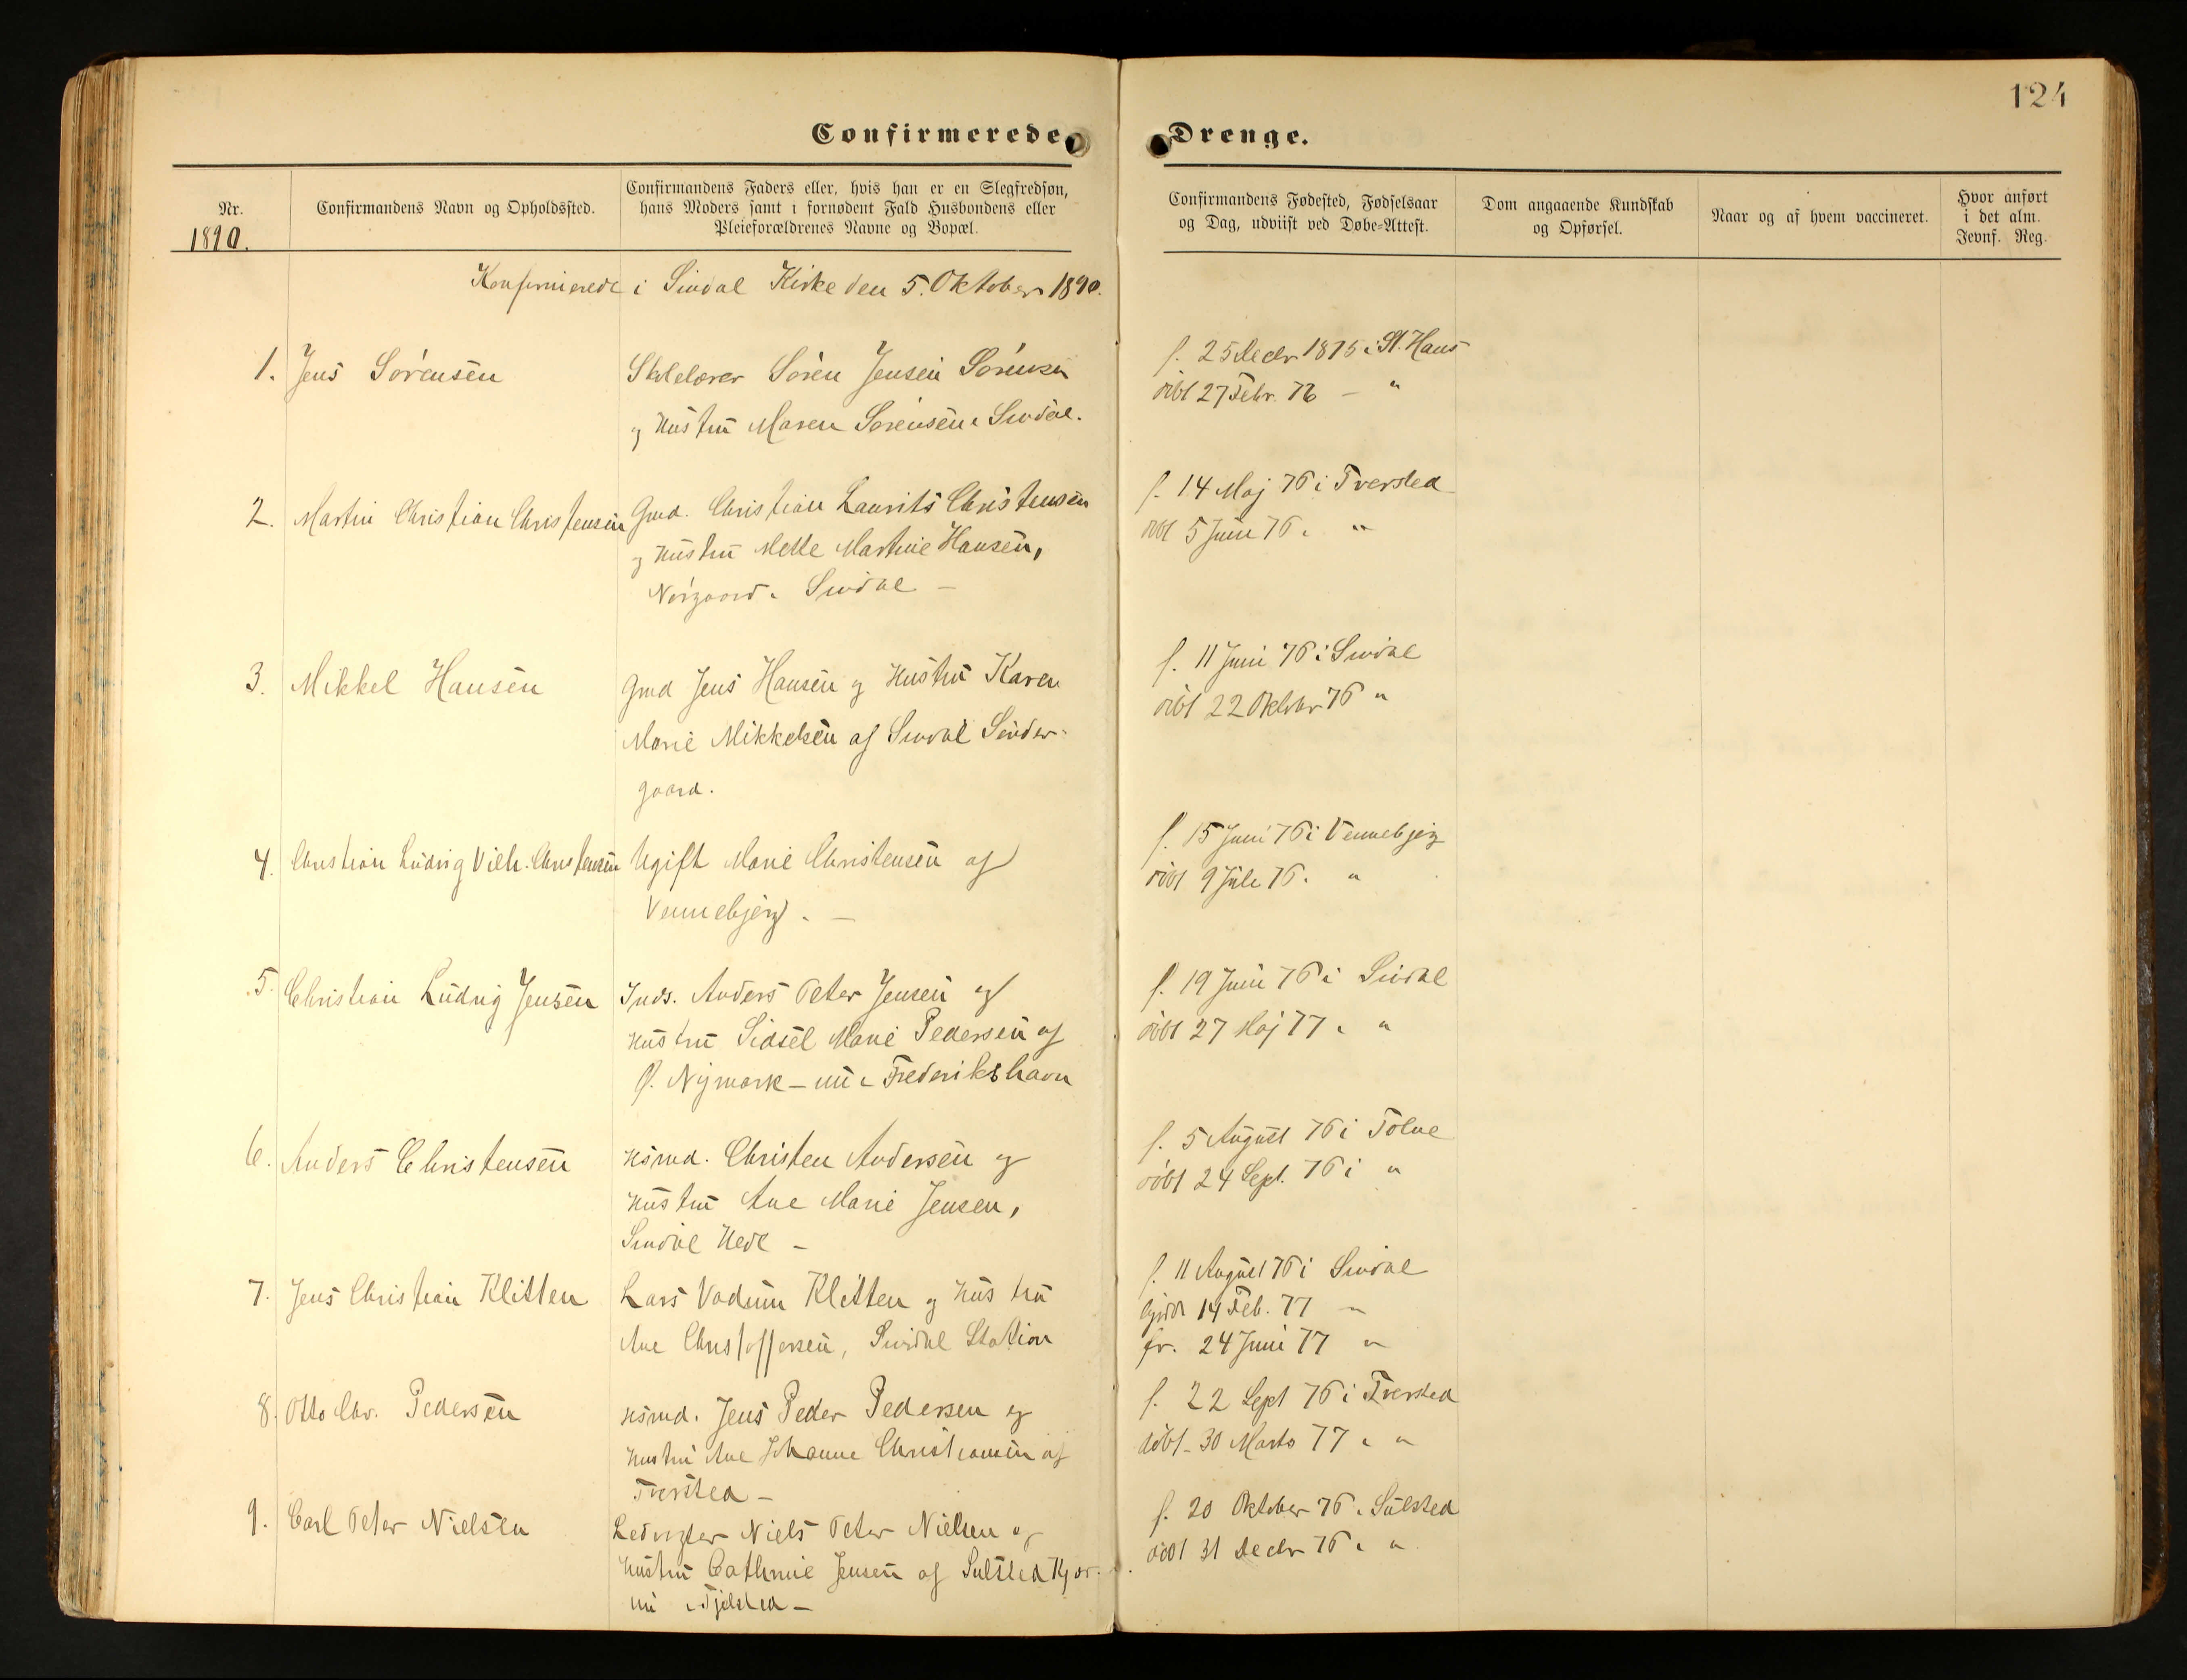 124
Confirmerede Drenge.
Nr.
1890.
Confirmandens Navn og Opholdssted.
Confirmandens Faders eller, hvis han er en Slegfredsøn,
hans Moders samt i fornødent Fald Husbondens eller
Pleieforældrenes Navne og Bopæl.
Confirmandens Fødested, Fødselsaar
og Dag, udviist ved Døbe-Attest.
Dom angaaende Kundskab
og Opførsel.
Naar og af hvem vaccineret.
Hvor anført
i det alm.
Jevnf. Reg.
Konfirmerede i Sindal Kirke den 5. Oktober 1890.
1. Jens Sørensen
Skolelærer Søren Jensen Sørensen
og Hustru Maren Sørensen i Sindal.
f. 25 Decbr 1875 i St. Hans
døbt 27 Febr. 76 – "
2. Martin Christian Christensen
Gmd. Christian Laurits Christensen
og Hustru Mette Martine Hansen,
Nørgaard i Sindal –
f. 14 Maj 76 i Tversted
døbt 5 Juni 76 i "
3. Mikkel Hansen
Gmd Jens Hansen og Hustru Karen
Marie Mikkelsen af Sindal Sønder-
gaard.
f. 11 Juni 76 i Sindal
døbt 22 Oktobr 76 "
4. Christian Ludvig Vilh. Christensen
Ugift Marie Christensen af
Vennebjerg. –
f. 15 Juni 76 i Vennebjerg
døbt 9 Juli 76 i "
5. Christian Ludvig Jensen
Inds. Anders Peter Jensen og
Hustru Sidsel Marie Pedersen af
Ø. Nymark – nu i Frederikshavn
f. 19 Juni 76 i Sindal
døbt 27 Maj 77 i "
6. Anders Christensen
Hsmd. Christen Andersen og
Hustru Ane Marie Jensen,
Sindal Hede –
f. 5 August 76 i Tolne
døbt 24 Sept. 76 i "
7. Jens Christian Klitten
Lars Vadum Klitten og Hustru
Ane Christoffersen, Sindal Station
f. 11 August 76 i Sindal
hjdbt 14 Feb. 77 "
fr. 24 Juni 77 "
8. Otto Chr. Pedersen
Hsmd. Jens Peder Pedersen og
Hustru Ane Johanne Christiansen af
Tversted –
f. 22 Sept 76 i Tversted
døbt 30 Marts 77 i "
9. Carl Peter Nielsen
Ledvogter Niels Peter Nielsen og
Hustru Cathrine Jensen af Sulsted Kjær.
nu i Tjelsted –
f. 20 Oktober 76 i Sulsted
døbt 31 Decbr 76 i "